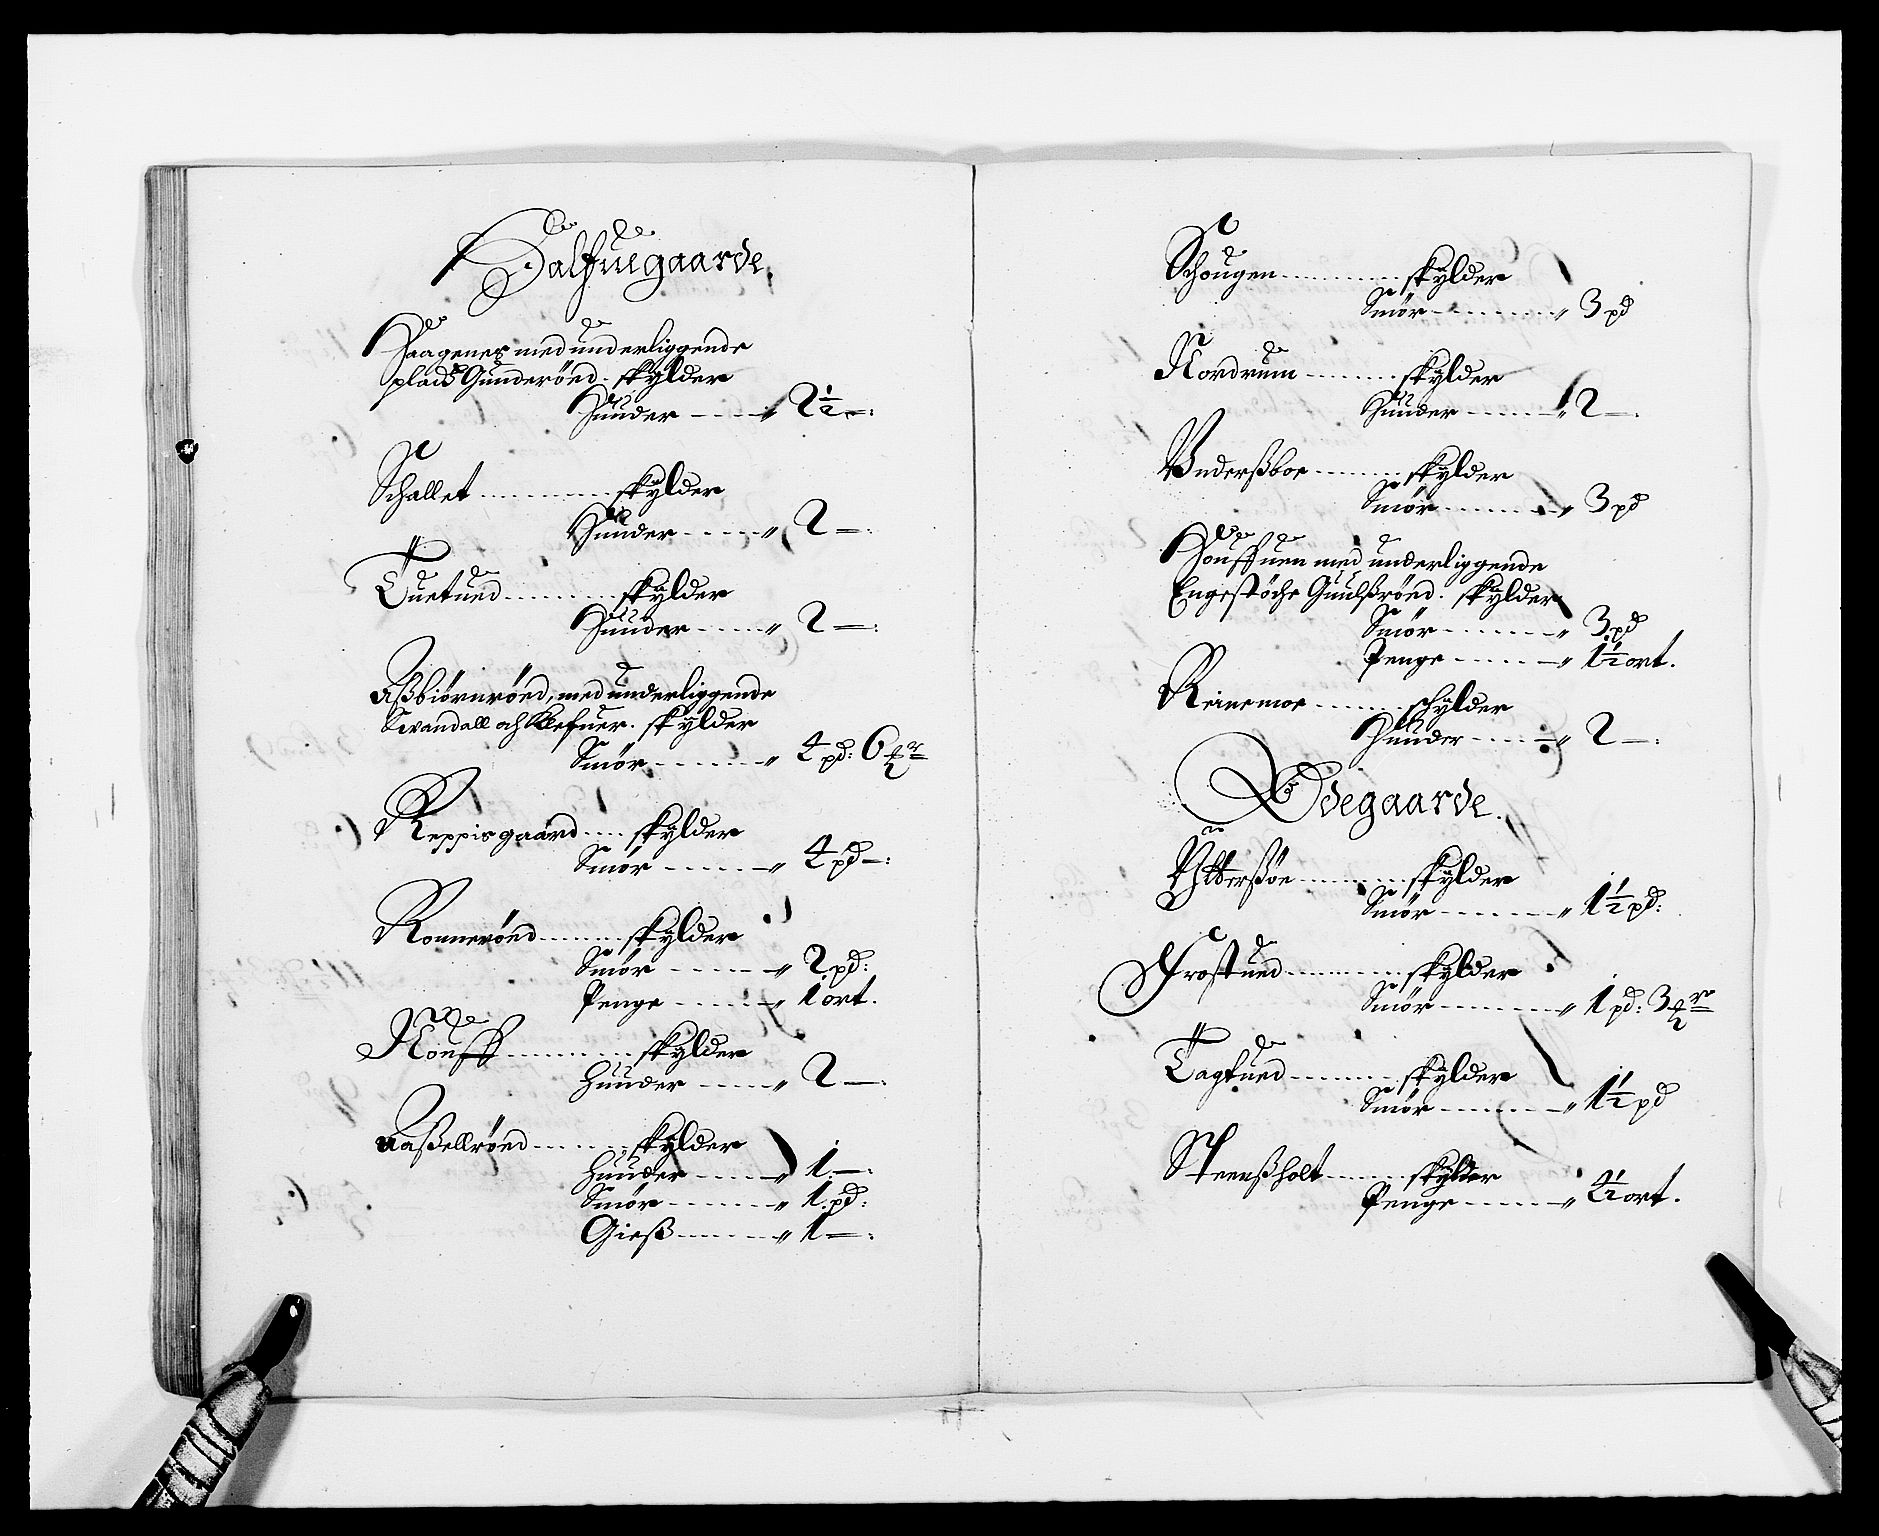 Halfuegaarde,
Haagenes med underliggende
plads Gunderöed. skylder
Huuder ---- „ 2½ —:
Schallet ........ skylder
Huuder ---- „ 2 —:
Tuetued ........ skylder
Huuder ---- „ 2 —:
Aßbiörnröed, med underliggende
Sevandall och Klefuer. skylder
Smör ------ „ 4 pd: 6
Reppisgaard .... skylder
Smör ------ „ 4 pd —:
Ronneröed ....... skylder
Smör ------ „ 2 pd:
Penge ------ „ 1 ort.
Nouff .......... skylder
Huuder ----- „ 2 —:
Aaßellröed ........ skylder
Huuder ----- „ 1 —:
Smör ------ „ 1 pd:
Gieß ------ „ 1 —:
Schougen .......... skylder
Smör -------- „ 3 pd
Nordrum ........ skylder
Huuder ------ „ 2 —:
Underßboe ........ skylder
Smör -------- „ 3 pd
Houffuen med underliggende
Engestöche Guulßröed. skylder
Smör ------- „ 3 pd
Penge ------ „ 1½ ort.
Reinemoe ........ skylder
Huuder ----- „ 2 —:
Ödegaarde.
Ytterßöe ......... skylder
Smör ------- „ 1½ pd:
Frostued .......... skylder
Smör ------- „ 1 pd: 3
Tagtued ........ skylder
Smör ------- „ 1½ pd
Steenßholt ....... skylder
Penge ------ „ ort.